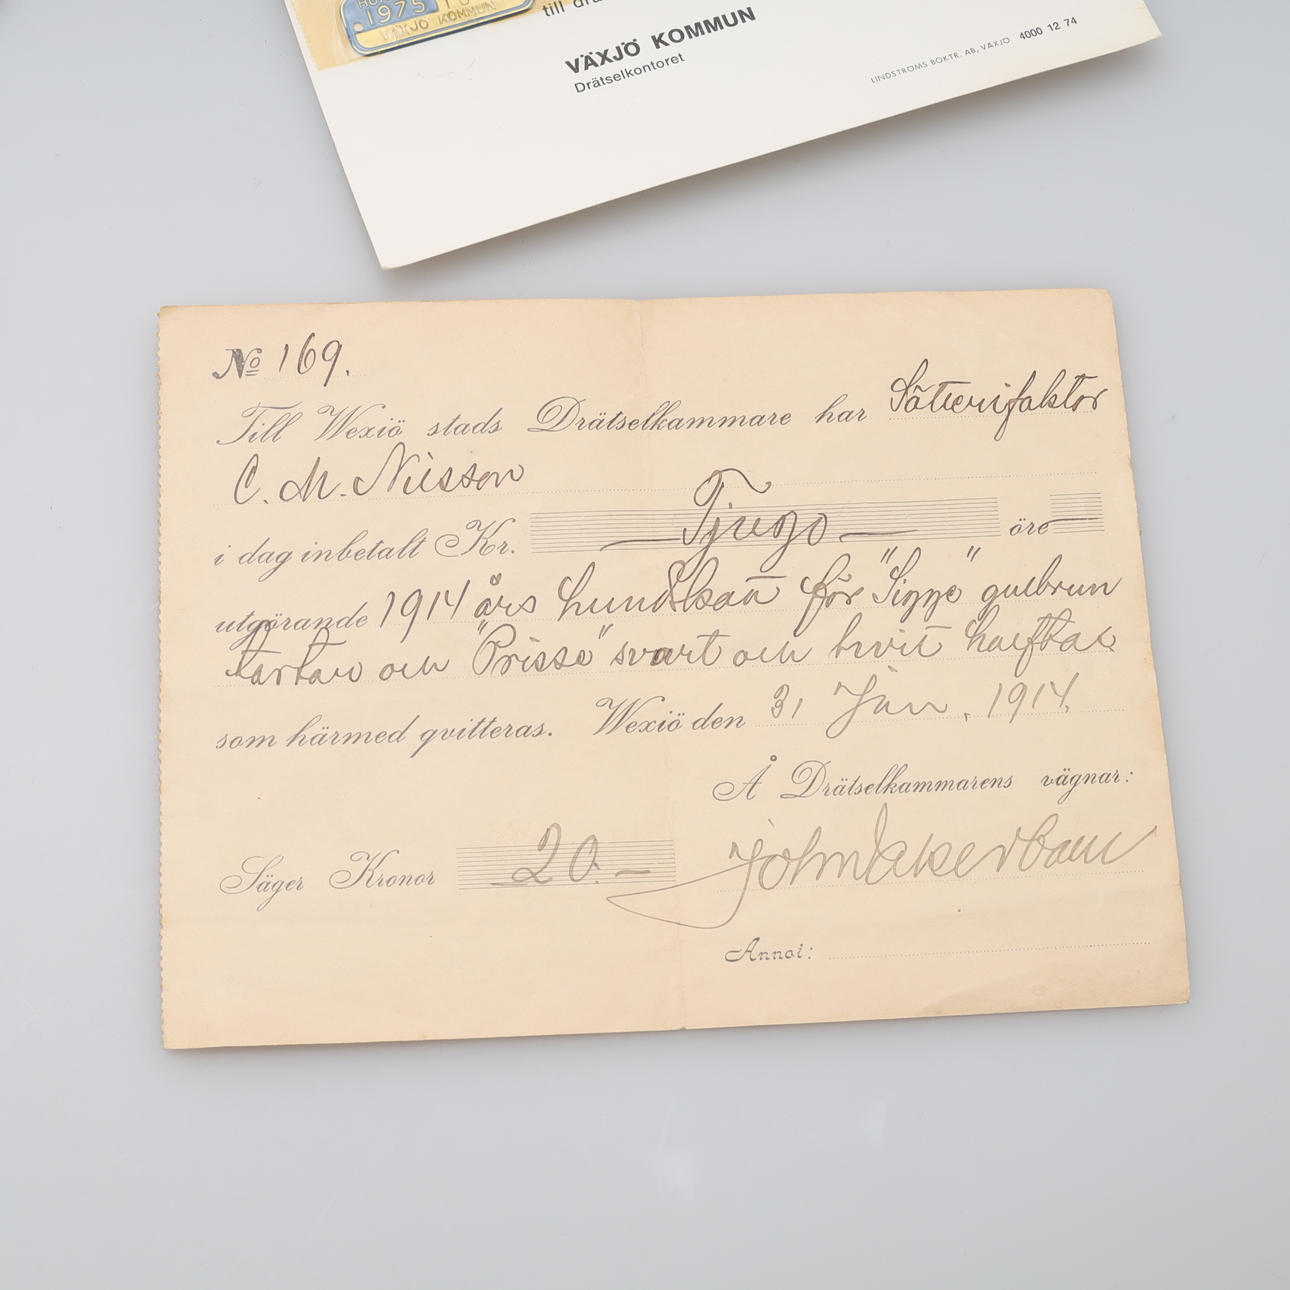 1975
VÄXJÖ KOMMUN
till
VÄXJÖ KOMMUN
Drätselkontoret
LINDSTRÖMS BOKTR. AB, VÄXJÖ 4000 12 74
No 169.
Till Wexiö stads Drätselkammare har Säterifaktor
C. M. Nilsson
i dag inbetalt Kr. — Tjugo — öre —
utgörande 1914 års hundskatt för "Sigge" gulbrun
och "Prisse" svart och hvit
som härmed qvitteras. Wexiö den 31 Jan. 1914.
Å Drätselkammarens vägnar:
Säger Kronor 20. — John Åkerbaum
Annot: